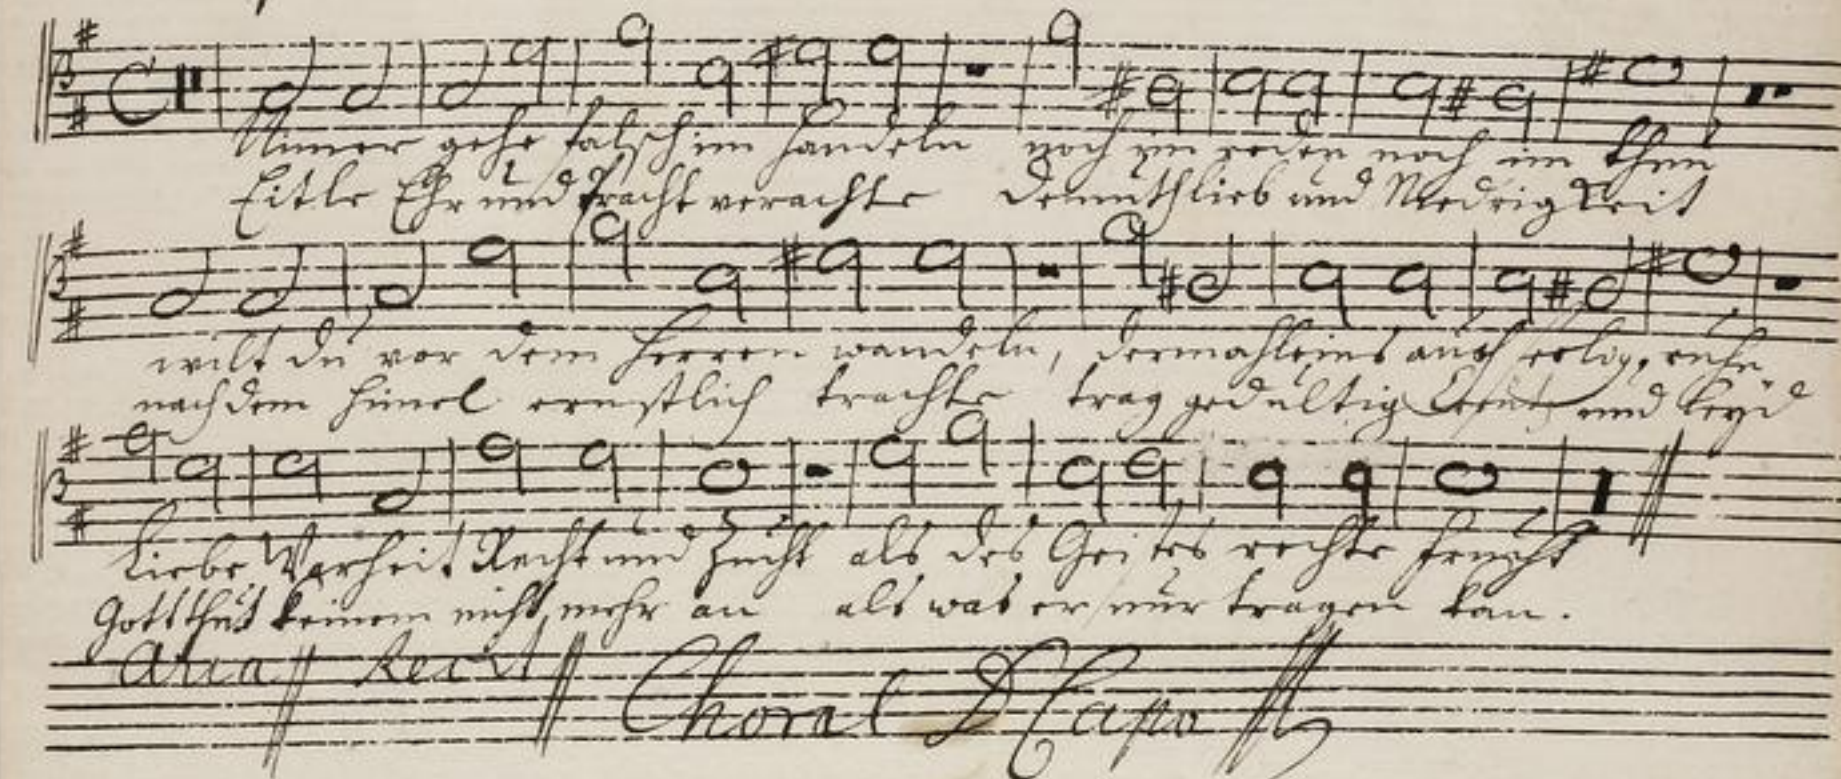 Nimer gehe falsch im handeln noch im reden noch im thun
Eitle Ehr und Pracht verachte Demuth lieb und Niedrigkeit
wilt du vor dem Herren wandeln, dermahleins auch seelig ruhn
nach dem Himel ernstlich trachte trag gedultig Creutz und Leyd
Liebe Warheit Recht und Zucht als des Geistes rechte Frucht
Gott thut keinem nicht mehr an als was er nur tragen kan.
Aria Recit Choral D Capo